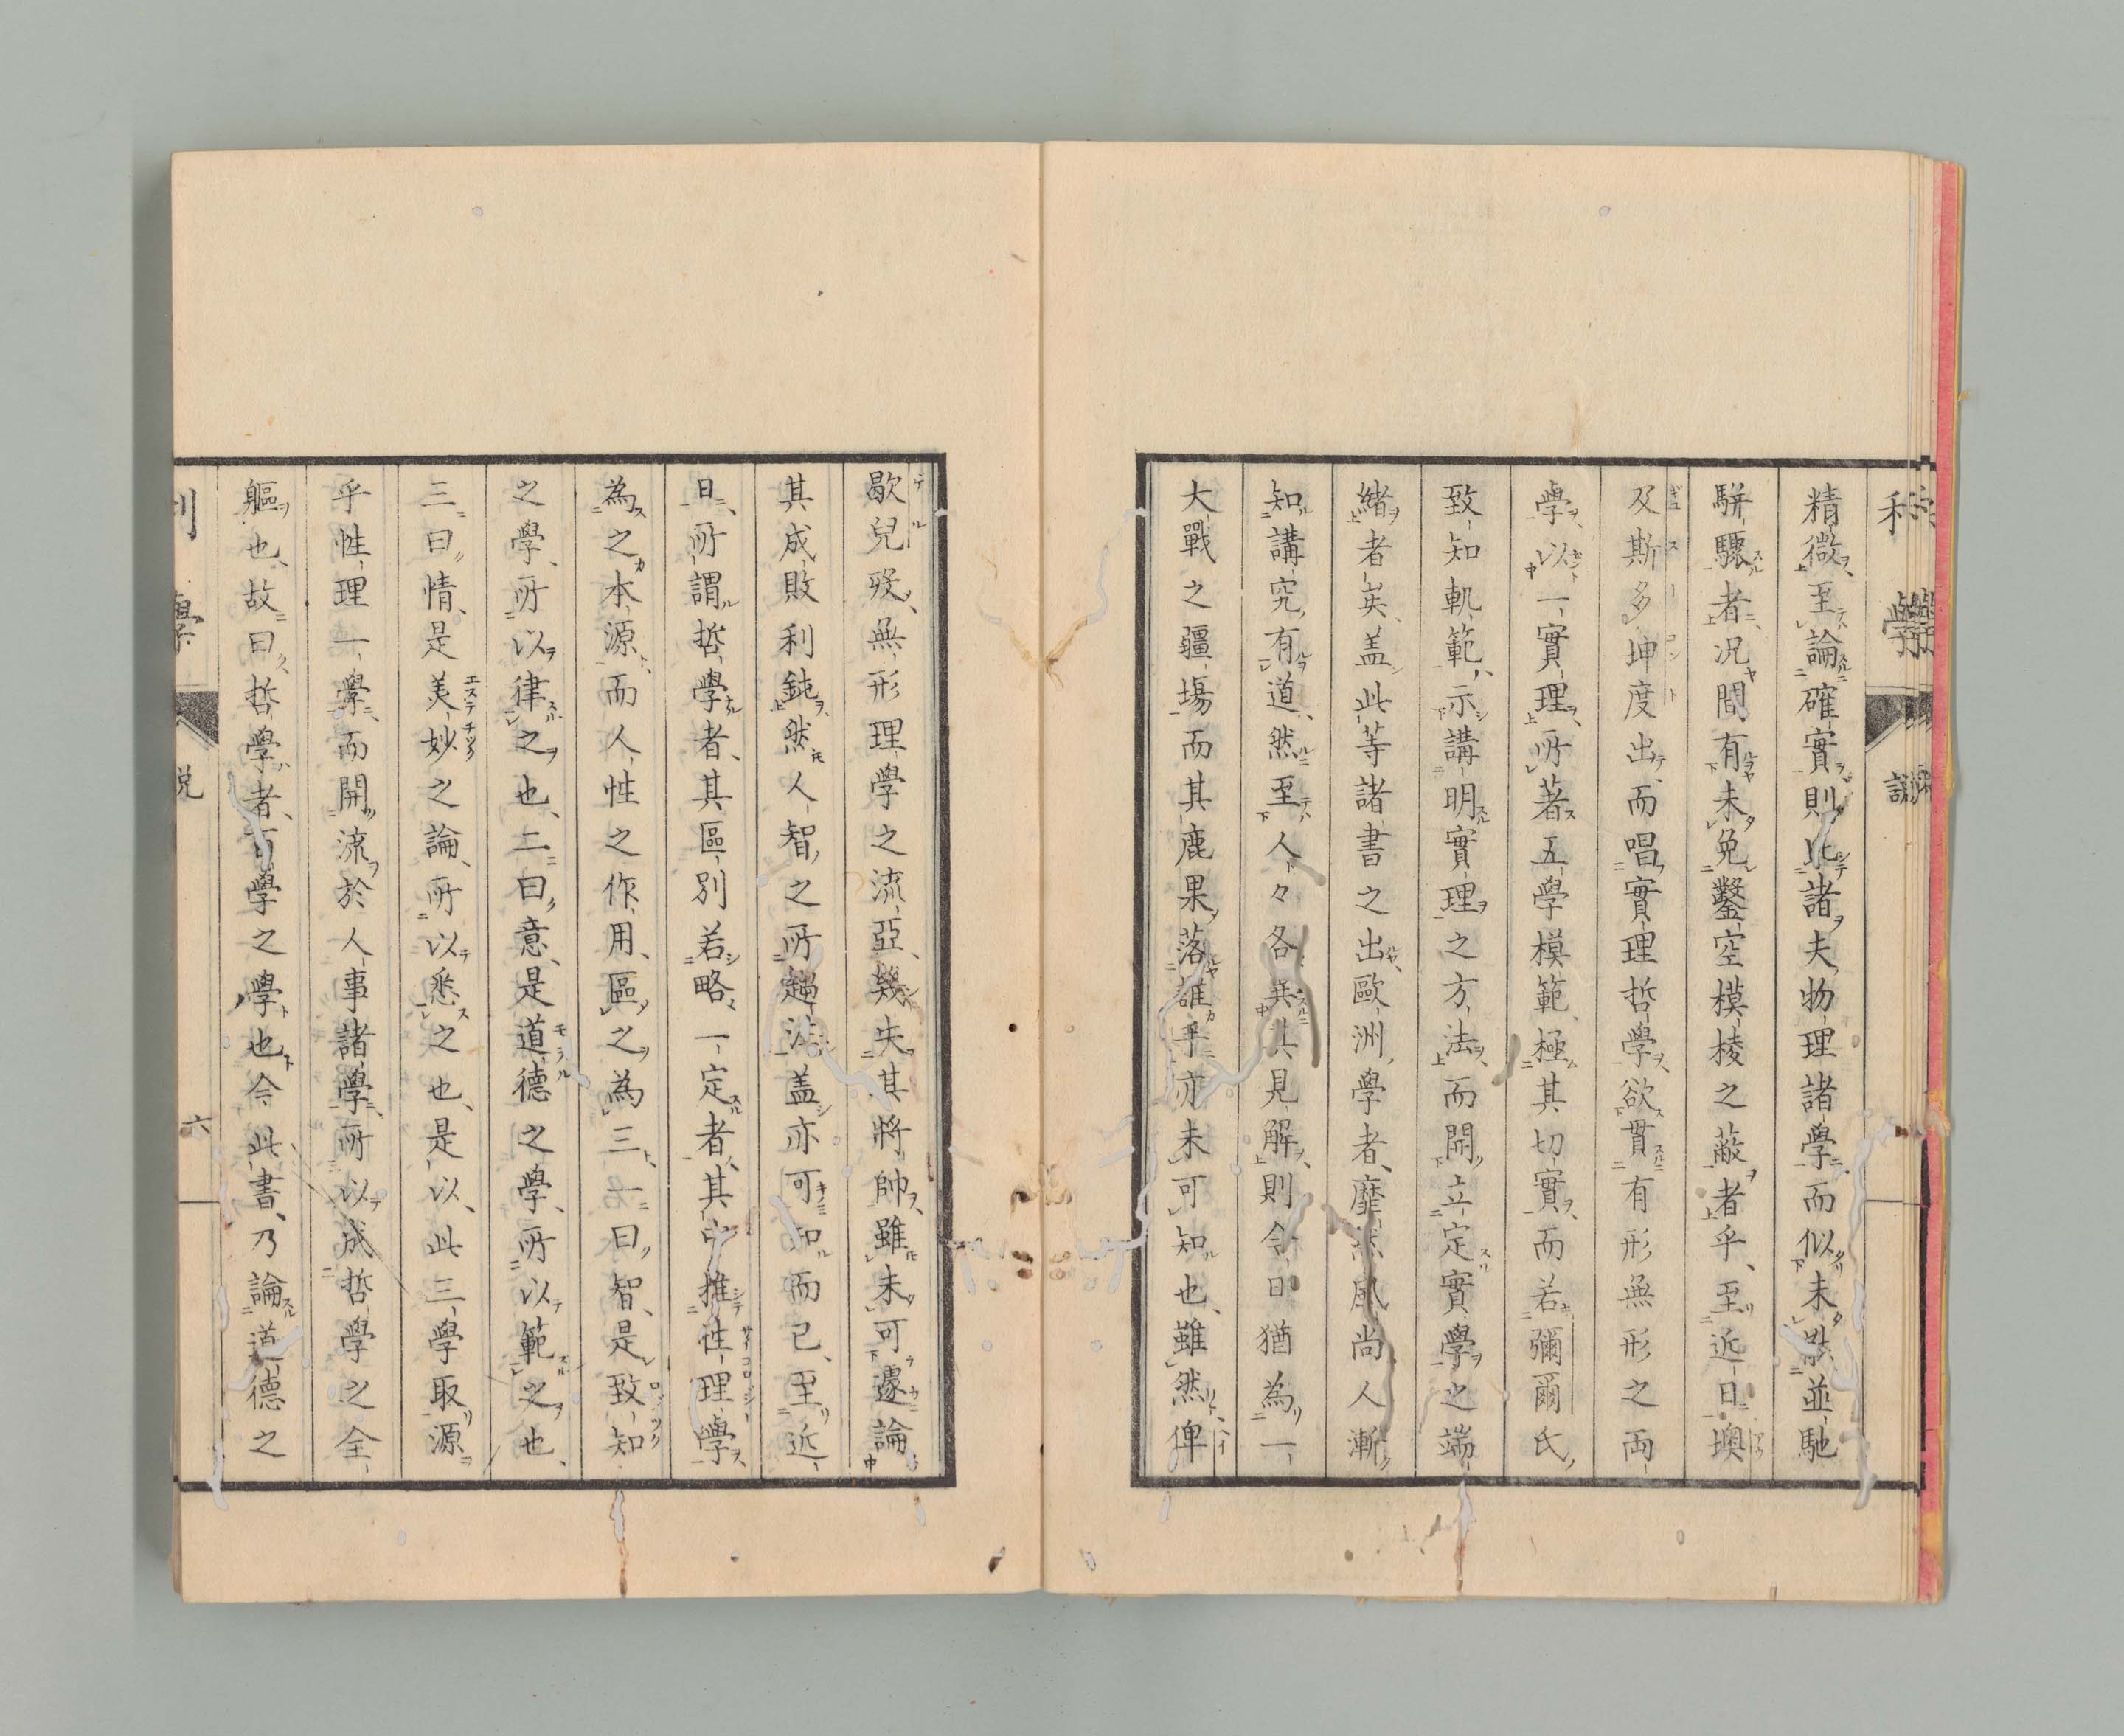 精微至論確實則比諸夫物理諸學而似未敢並馳
駢驟者況間有未免鑿空模棱之蔽者乎、至近日墺
及斯多坤度出而唱實理哲學欲貫有形無形之両
學以一實理所著五學模範極其切實而若彌爾氏
致知軌範示講明實理之方法而開立定實學之端
緒者矣盖此等諸書之出歐洲學者、靡然風尚人漸
知講究有道、然至人々各異其見解則今日猶為一
大戰之疆場而其鹿果落誰手亦未可知也、雖然俾
歇兒歿、無形理學之流亞、幾失其將帥雖未可遽論
其成敗利鈍然人智之所趨法盖亦可知而已、至近
日所謂哲學者、其區別若略一定者、其中推性理學
為之本源而人性之作用、區之為三一曰智、是致知
之學、所以律之也、二曰意、是道德之學、所以範之也、
三曰情、是美妙之論、所以悉之也、是以、此三學取源
乎性理一學而開流於人事諸學所以成哲學之全
軀也、故曰哲學者、百學之學也今此書、乃論道德之
學
説
六